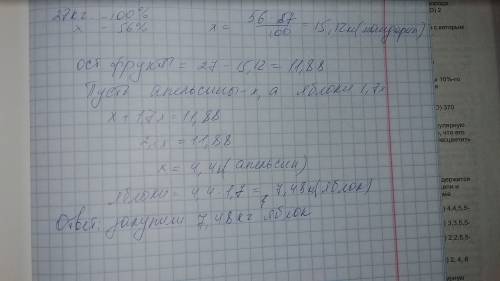 27кг - 100%
x - 56%
x = 56 · 27 / 100 = 15,12кг (мандарин)
ост фрукты = 27 - 15,12 = 11,88
Пусть апельсины - x, а яблоки 1,7x
x + 1,7x = 11,88
2,7x = 11,88
x = 4,4кг (апельсин)
яблоки = 4,4 · 1,7 = 7,48кг (яблок)
Ответ: закупили 7,48кг яблок
О) 2
с которым
в 10%-го
О) 370
что его
) 4,4,5,5-
) 3,3,5,5-
) 2,2,5,5-
) 2, 4, 6